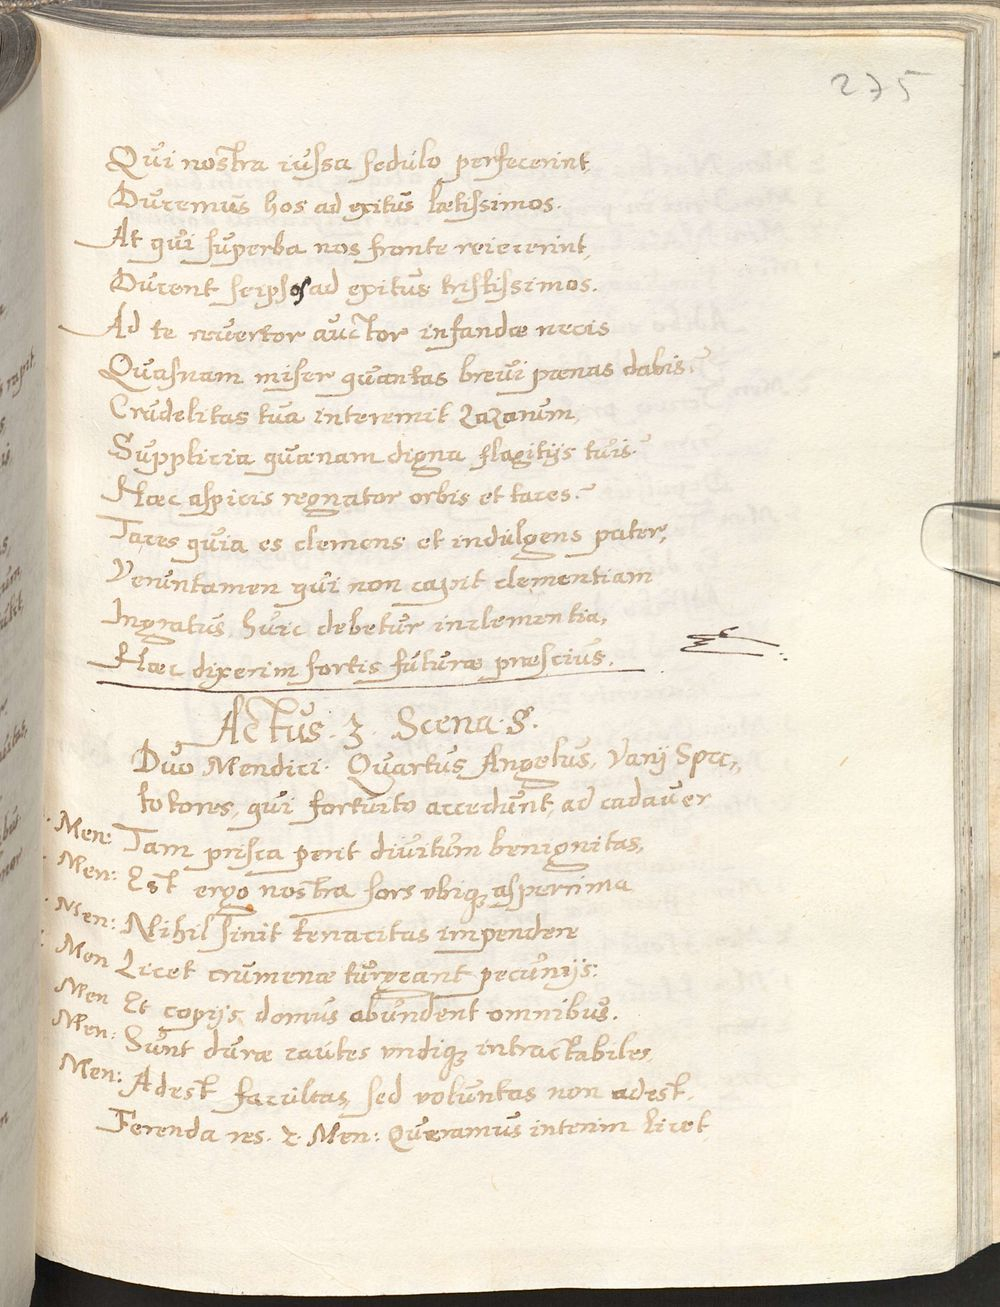 275
Qui nostra iussa sedulo perfecerint
Ducemus hos ad exitus lætissimos.
At qui superba nos fronte reiecerint,
Ducent seipsos ad exitus tristissimos.
Ad te revertor auctor infandæ necis
Quasnam miser quantas brevi pænas dabis?
Crudelitas tua interemit Zazarum,
Supplicia quænam digna flagitijs tuis?
Hæc aspicis regnator orbis et taces?
Taces quia es clemens et indulgens pater,
Veruntamen qui non capit clementiam
Ingratus, huic debetur inclementia,
Hæc dixerim sortis futuræ præscius.
Actus. 3. Scena. 8.
Duo Mendici. Quartus Angelus, Varij Spec,,
tatores, qui fortuito accedunt, ad cadauer
Men: Tam prisca perit diuitum benignitas,
Men: Est ergo nostra sors vbiq; asperrima
Men: Nihil sinit tenacitas impendere
Men Licet crumenæ turgeant pecunijs:
Men Et copijs domus abundent omnibus.
Men: Sunt duræ cautes vndiq; intractabiles,
Men: Adest facultas, sed voluntas non adest.
Ferenda res. 2. Men: Quæramus interim licet